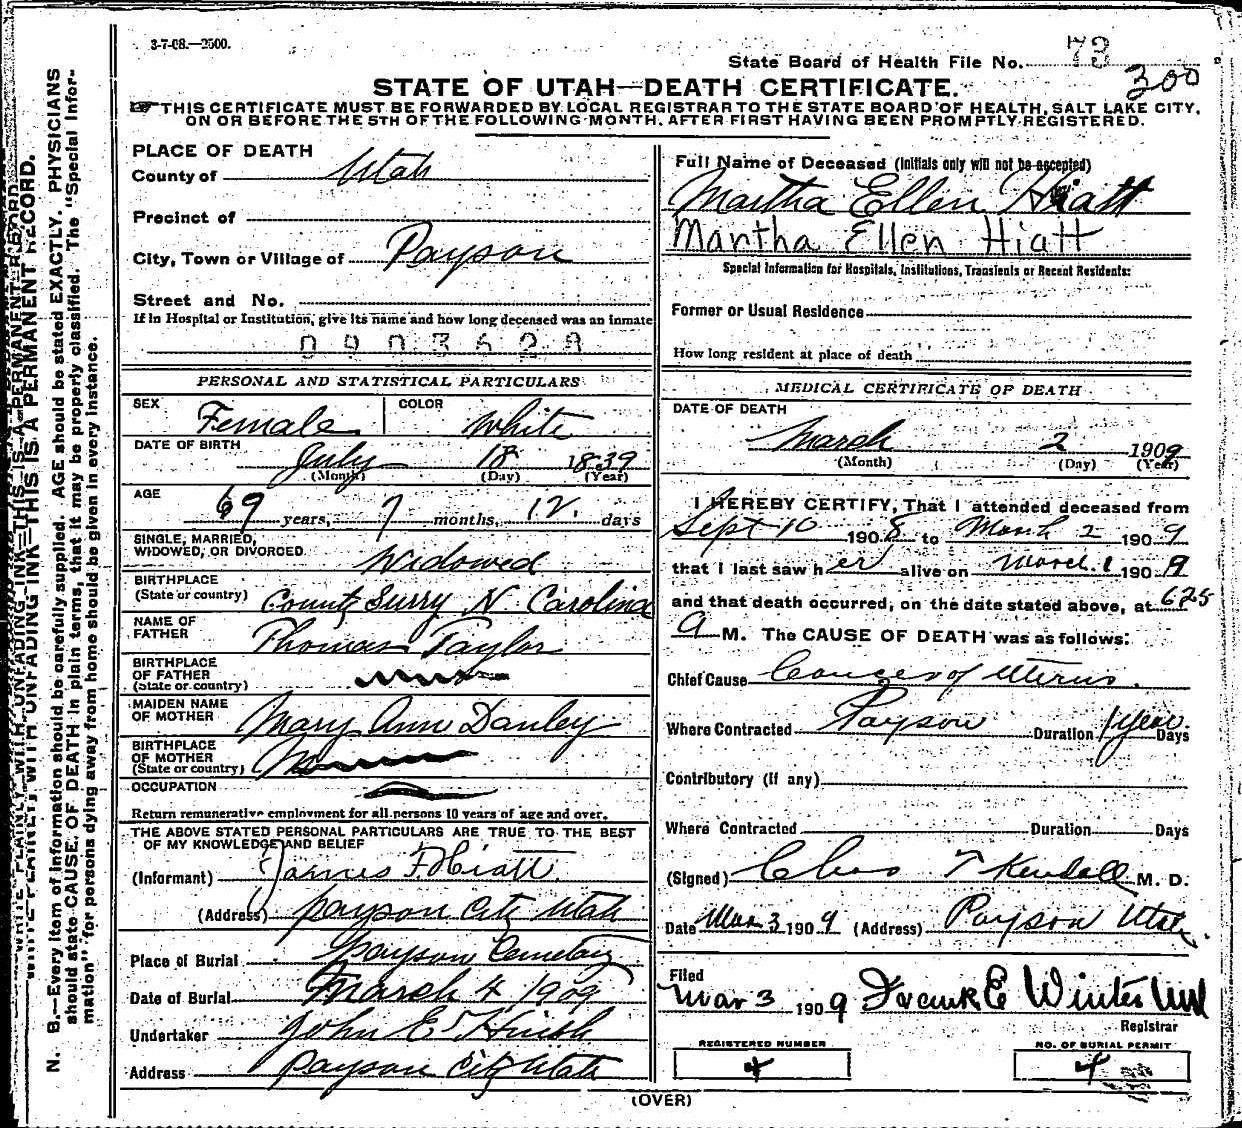 3-7-08.—2500.
State Board of Health File No. 73
300
STATE OF UTAH—DEATH CERTIFICATE.
THIS CERTIFICATE MUST BE FORWARDED BY LOCAL REGISTRAR TO THE STATE BOARD OF HEALTH, SALT LAKE CITY,
ON OR BEFORE THE 5TH OF THE FOLLOWING MONTH, AFTER FIRST HAVING BEEN PROMPTLY REGISTERED.
WRITE PLAINLY WITH UNFADING INK—THIS IS A PERMANENT RECORD.
N. B.—Every item of information should be carefully supplied. AGE should be stated EXACTLY. PHYSICIANS
should state CAUSE OF DEATH in plain terms, that it may be properly classified. The "Special Infor-
mation" for persons dying away from home should be given in every instance.
PLACE OF DEATH
County of Utah
Precinct of
City, Town or Village of Payson
Street and No.
If in Hospital or Institution, give its name and how long deceased was an inmate
PERSONAL AND STATISTICAL PARTICULARS
SEX Female COLOR White
DATE OF BIRTH July 18 1839
(Month) (Day) (Year)
AGE 69 years, 7 months, 12 days
SINGLE, MARRIED,
WIDOWED, OR DIVORCED Widowed
BIRTHPLACE
(State or country) County Surry N. Carolina
NAME OF
FATHER Thomas Taylor
BIRTHPLACE
OF FATHER
(State or country)
MAIDEN NAME
OF MOTHER Mary Ann Danley
BIRTHPLACE
OF MOTHER
(State or country)
OCCUPATION
Return remunerative employment for all persons 10 years of age and over.
THE ABOVE STATED PERSONAL PARTICULARS ARE TRUE TO THE BEST
OF MY KNOWLEDGE AND BELIEF
(Informant) James F. Hiatt
(Address) Payson City Utah
Place of Burial Payson Cemetery
Date of Burial March 4 1909
Undertaker John E. Huish
Address Payson City Utah
Full Name of Deceased (Initials only will not be accepted)
Martha Ellen Hiatt
Martha Ellen Hiatt
Special Information for Hospitals, Institutions, Transients or Recent Residents:
Former or Usual Residence
How long resident at place of death
MEDICAL CERTIFICATE OF DEATH
DATE OF DEATH
March 2 1909
(Month) (Day) (Year)
I HEREBY CERTIFY, That I attended deceased from
Sept 10 1908 to March 2 1909
that I last saw her alive on March 1 1909
and that death occurred, on the date stated above, at 625
A M. The CAUSE OF DEATH was as follows:
Chief Cause Cancer of Uterus.
Where Contracted Payson Duration 1 year Days
Contributory (if any)
Where Contracted Duration Days
(Signed) Chas T Kendall M. D.
Date Mar 3 1909 (Address) Payson Utah.
Filed
Mar 3 1909 Frank E Winter MD
Registrar
REGISTERED NUMBER NO. OF BURIAL PERMIT
4 4
(OVER)